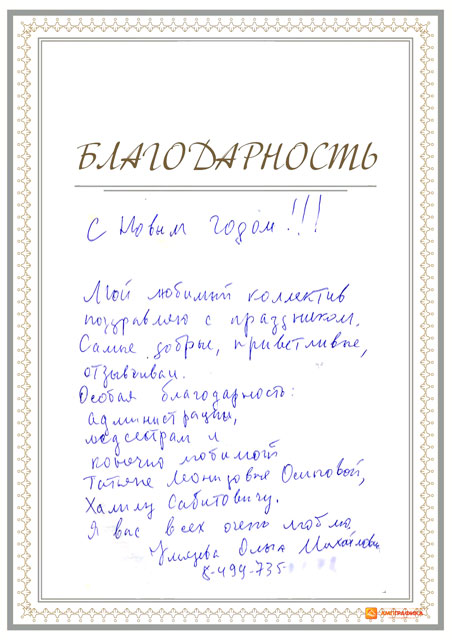 БЛАГОДАРНОСТЬ
С Новым годом!!!
Мой любимый коллектив
поздравляю с праздником.
Самые добрые, приветливые,
отзывчивые.
Особая благодарность:
администрации,
медсестрам и
конечно любимой
Татьяне Леонидовне Осиповой,
Халилу Сабитовичу.
Я вас всех очень люблю
Ольга Михайловна
8-499-735-